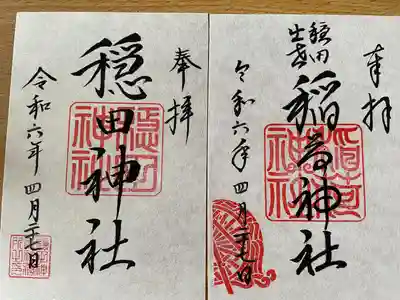 奉拝
穏田神社
令和六年四月二十七日
穏田神社
奉拝
穏田
出世
稲荷神社
令和六年四月二十七日